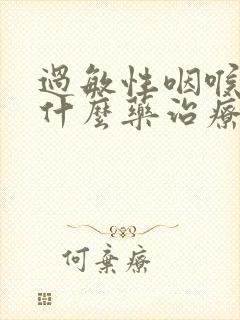 過敏性咽喉
什麼藥治療
何棄療